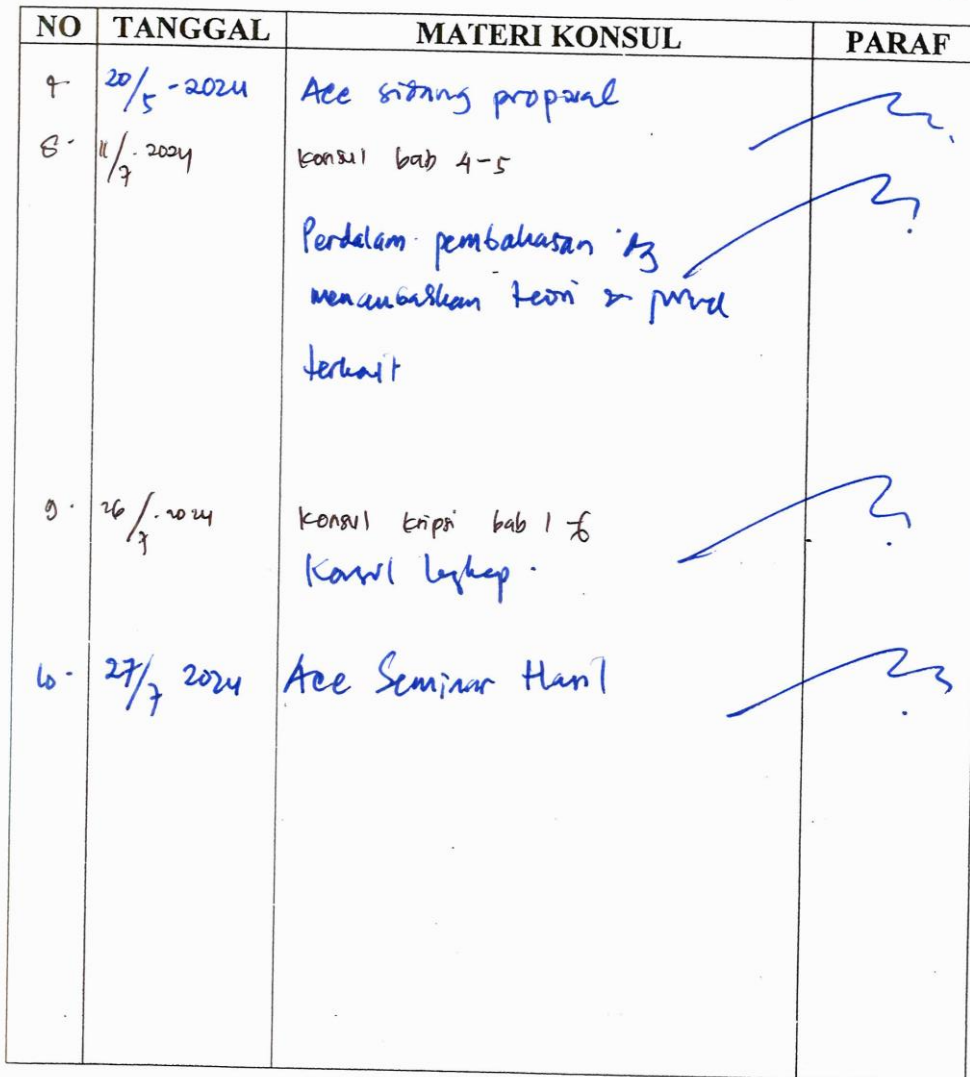 NO TANGGAL MATERI KONSUL PARAF
20/5-2024 Acc sidang proposal
8. 11/7.2024 Konsul bab 4-5
Perdalam pembahasan dg
menambahkan teori &
terkait
9. 26/7.2024 Konsul kripsi bab 1-6
Konsul lengkap.
10. 27/7 2024 Acc Seminar Hasil